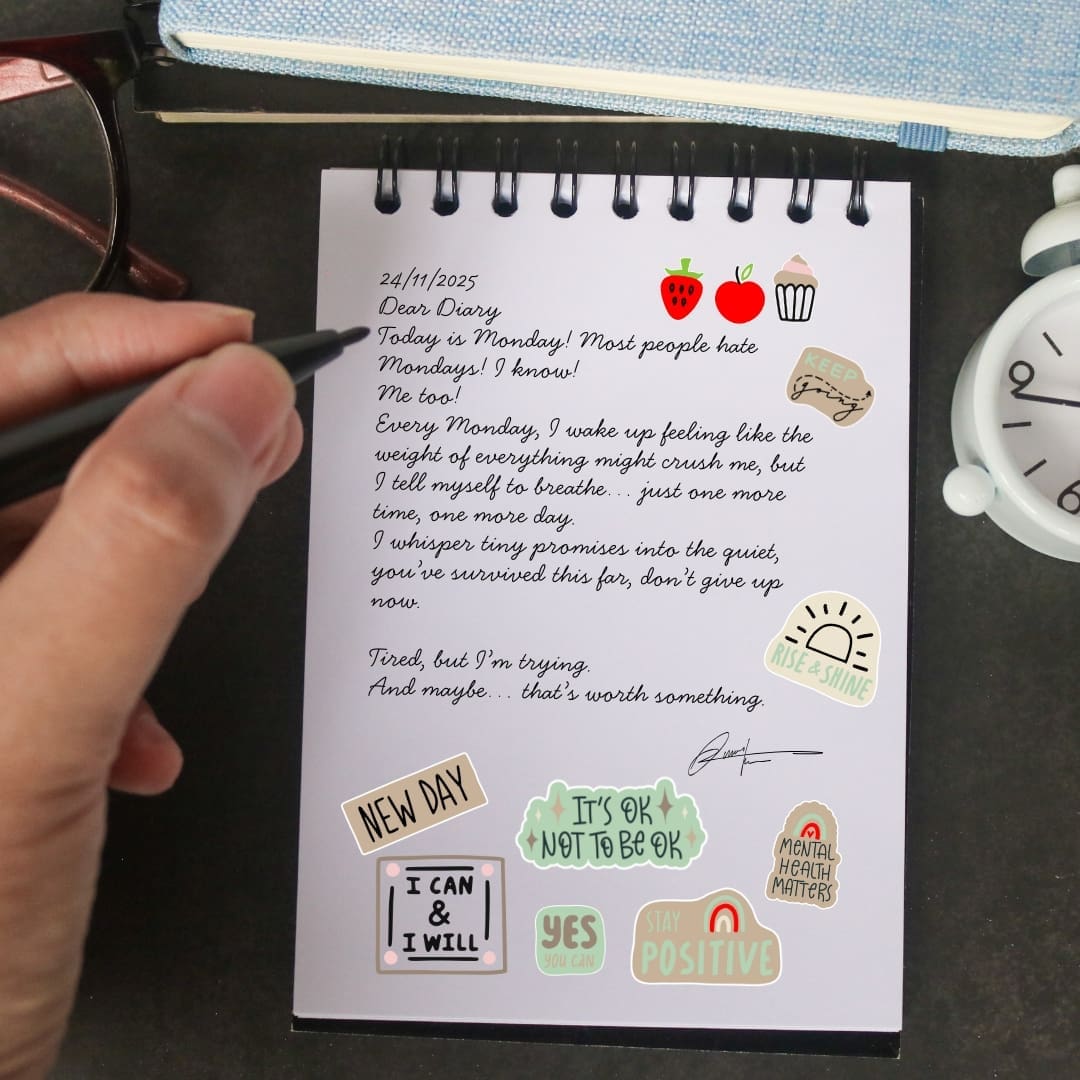 24/11/2025
Dear Diary
Today is Monday! Most people hate
Mondays! I know!
Me too!
Every Monday, I wake up feeling like the
weight of everything might crush me, but
I tell myself to breathe... just one more
time, one more day.
I whisper tiny promises into the quiet,
you've survived this far, don't give up
now.
Tired, but I'm trying.
And maybe... that's worth something.
KEEP
going
RISE & SHINE
NEW DAY
IT'S OK
NOT TO BE OK
MENTAL
HEALTH
MATTERS
I CAN
&
I WILL
YES
YOU CAN
STAY
POSITIVE
9
6